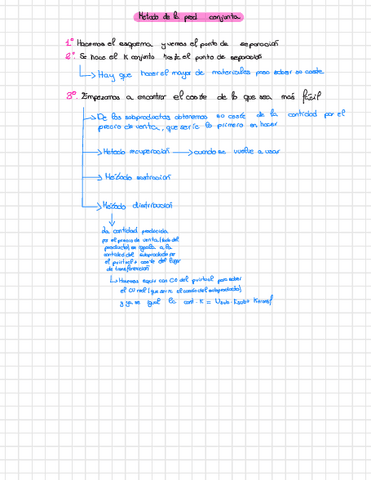 Metodo de la prod. conjunta
1º Hacemos el esquema y vemos el punto de separación
2º Se hace el K conjunto hasta el punto de separación
Hay que hacer el mayor de materiales para saber su coste.
3º Empezamos a encontrar el coste de lo que sea más fácil
De los subproductos obtenemos su coste de la cantidad por el
precio de venta, que sería lo primero en hacer
Método recuperación → cuando se vuelve a usar
Método sustracción
Método distribución
La cantidad producida
por el precio de venta
producto se iguala a la
cantidad del subproducto por
el + coste del lugar
de transformación
Hacemos con del para saber
el real (que sería el coste del subproducto)
y ya es igual la